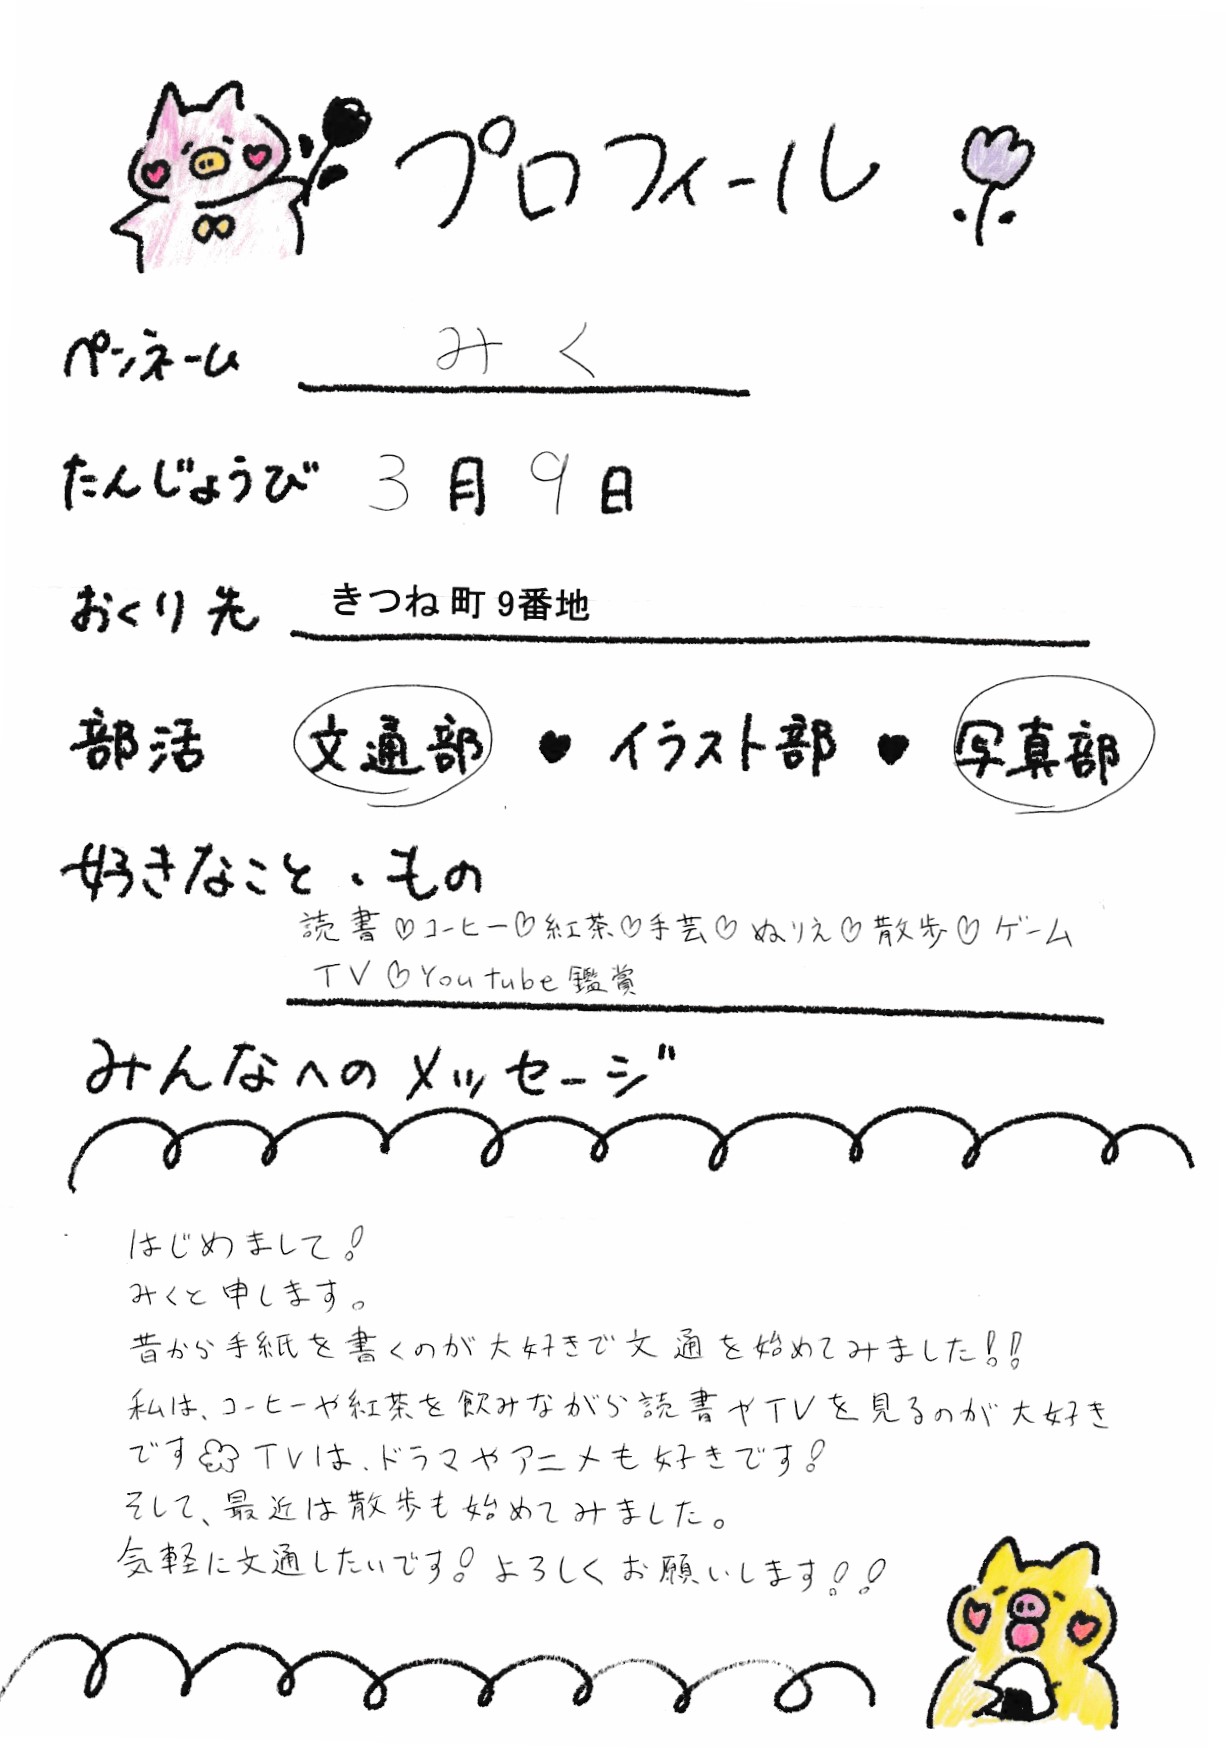 プロフィール
ペンネーム みく
たんじょうび 3月9日
おくり先 きつね町9番地
部活 文通部 ♥ イラスト部 ♥ 写真部
好きなこと・もの
読書♡コーヒー♡紅茶♡手芸♡ぬりえ♡散歩♡ゲーム
TV♡Youtube鑑賞
みんなへのメッセージ
はじめまして!
みくと申します。
昔から手紙を書くのが大好きで文通を始めてみました!!
私は、コーヒーや紅茶を飲みながら読書やTVを見るのが大好き
です TVは、ドラマやアニメも好きです!
そして、最近は散歩も始めてみました。
気軽に文通したいです!よろしくお願いします!!